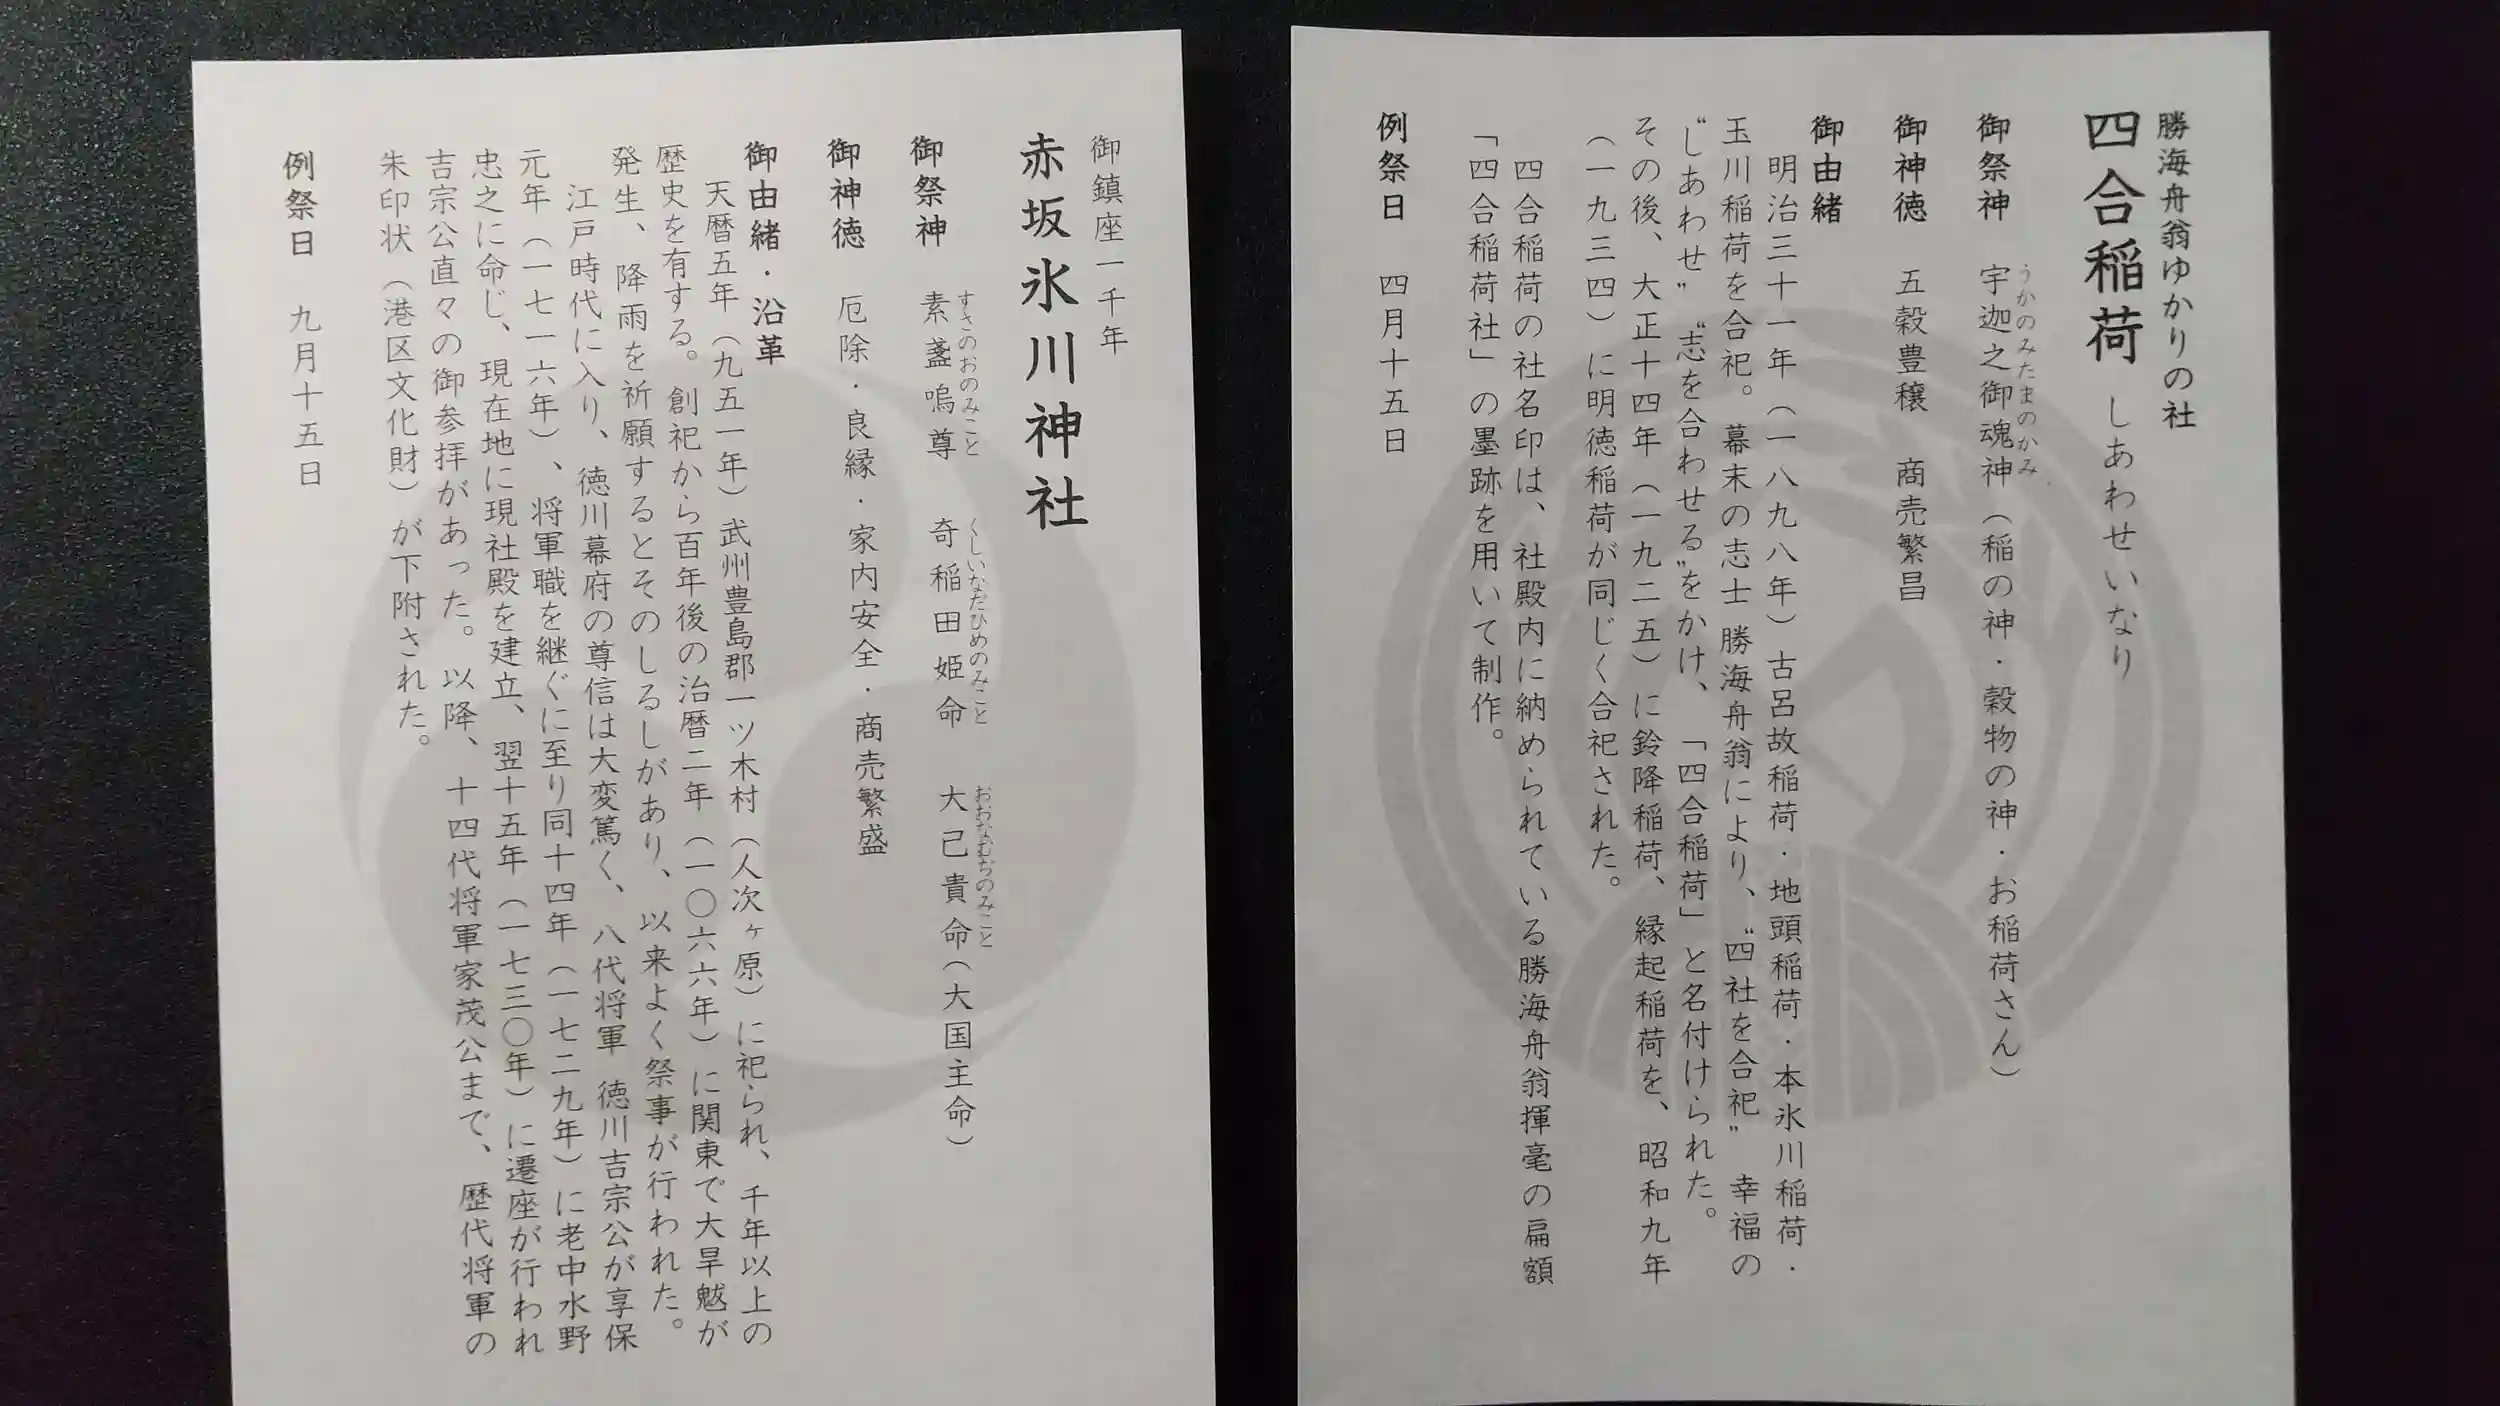 勝海舟翁ゆかりの社
四合稲荷 しあわせいなり
御祭神 宇迦之御魂神（稲の神・穀物の神・お稲荷さん）
うかのみたまのかみ
御神徳 五穀豊穣 商売繁昌
御由緒
明治三十一年（一八九八年）古呂故稲荷・地頭稲荷・本氷川稲荷・
玉川稲荷を合祀。幕末の志士 勝海舟翁により、〝四社を合祀〟 幸福の
〝しあわせ〟〝志を合わせる〟をかけ、「四合稲荷」と名付けられた。
その後、大正十四年（一九二五）に鈴降稲荷、縁起稲荷を、昭和九年
（一九三四）に明徳稲荷が同じく合祀された。
四合稲荷の社名印は、社殿内に納められている勝海舟翁揮毫の扁額
「四合稲荷社」の墨跡を用いて制作。
例祭日 四月十五日
御鎮座一千年
赤坂氷川神社
御祭神 素盞嗚尊 奇稲田姫命 大己貴命（大国主命）
すさのおのみこと くしいなだひめのみこと おおなむぢのみこと
御神徳 厄除・良縁・家内安全・商売繁盛
御由緒・沿革
天暦五年（九五一年）武州豊島郡一ツ木村（人次ヶ原）に祀られ、千年以上の
歴史を有する。創祀から百年後の治暦二年（一〇六六年）に関東で大旱魃が
発生、降雨を祈願するとそのしるしがあり、以来よく祭事が行われた。
江戸時代に入り、徳川幕府の尊信は大変篤く、八代将軍 徳川吉宗公が享保
元年（一七一六年）、将軍職を継ぐに至り同十四年（一七二九年）に老中水野
忠之に命じ、現在地に現社殿を建立、翌十五年（一七三〇年）に遷座が行われ
吉宗公直々の御参拝があった。以降、十四代将軍家茂公まで、歴代将軍の
朱印状（港区文化財）が下附された。
例祭日 九月十五日